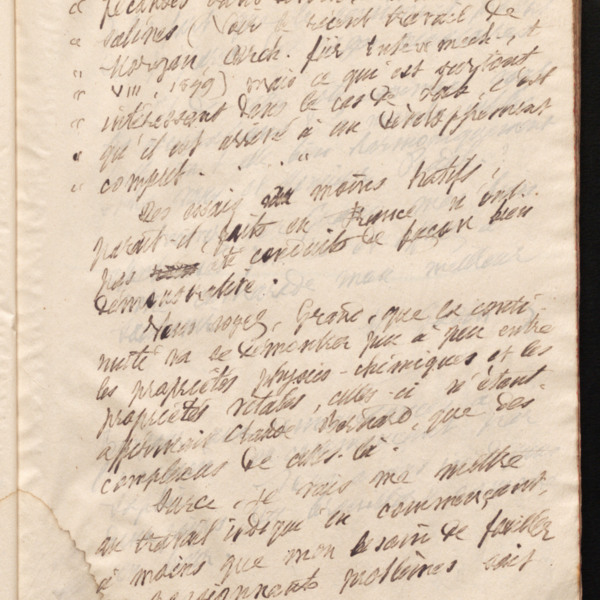 " salines (Voir le récent travail de
" Morgan Arch. für Entw. mech., t
" VIII, 1899) mais ce qui est surtout
" intéressant dans le cas de Loeb, c'est
" qu'il est arrivé à un développement
" complet. . . . "
Des essais au moins hatifs,
parait-il, faits en France n'ont
pas été conduits de façon bien
démonstrative.
Vous voyez, Grand, que la conti-
nuité va se démontrer peu à peu entre
les propriétés physico-chimiques et les
propriétés vitales, celles-ci n'étant,
Claude Bernard, que des
complexus de celles-là.
Parce je vais me mettre
au travail indiqué en commençant,
à moins que mon besoin de fouiller
problèmes soit